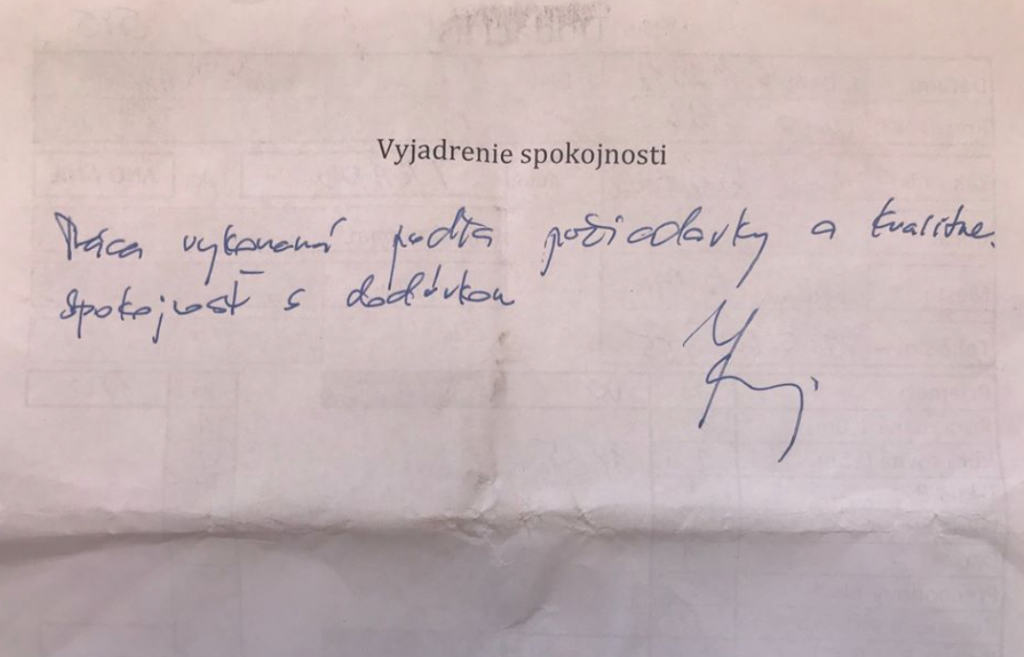 Vyjadrenie spokojnosti
Práca vykonaná podľa požiadavky a kvalitne.
Spokojnosť s dodávkou